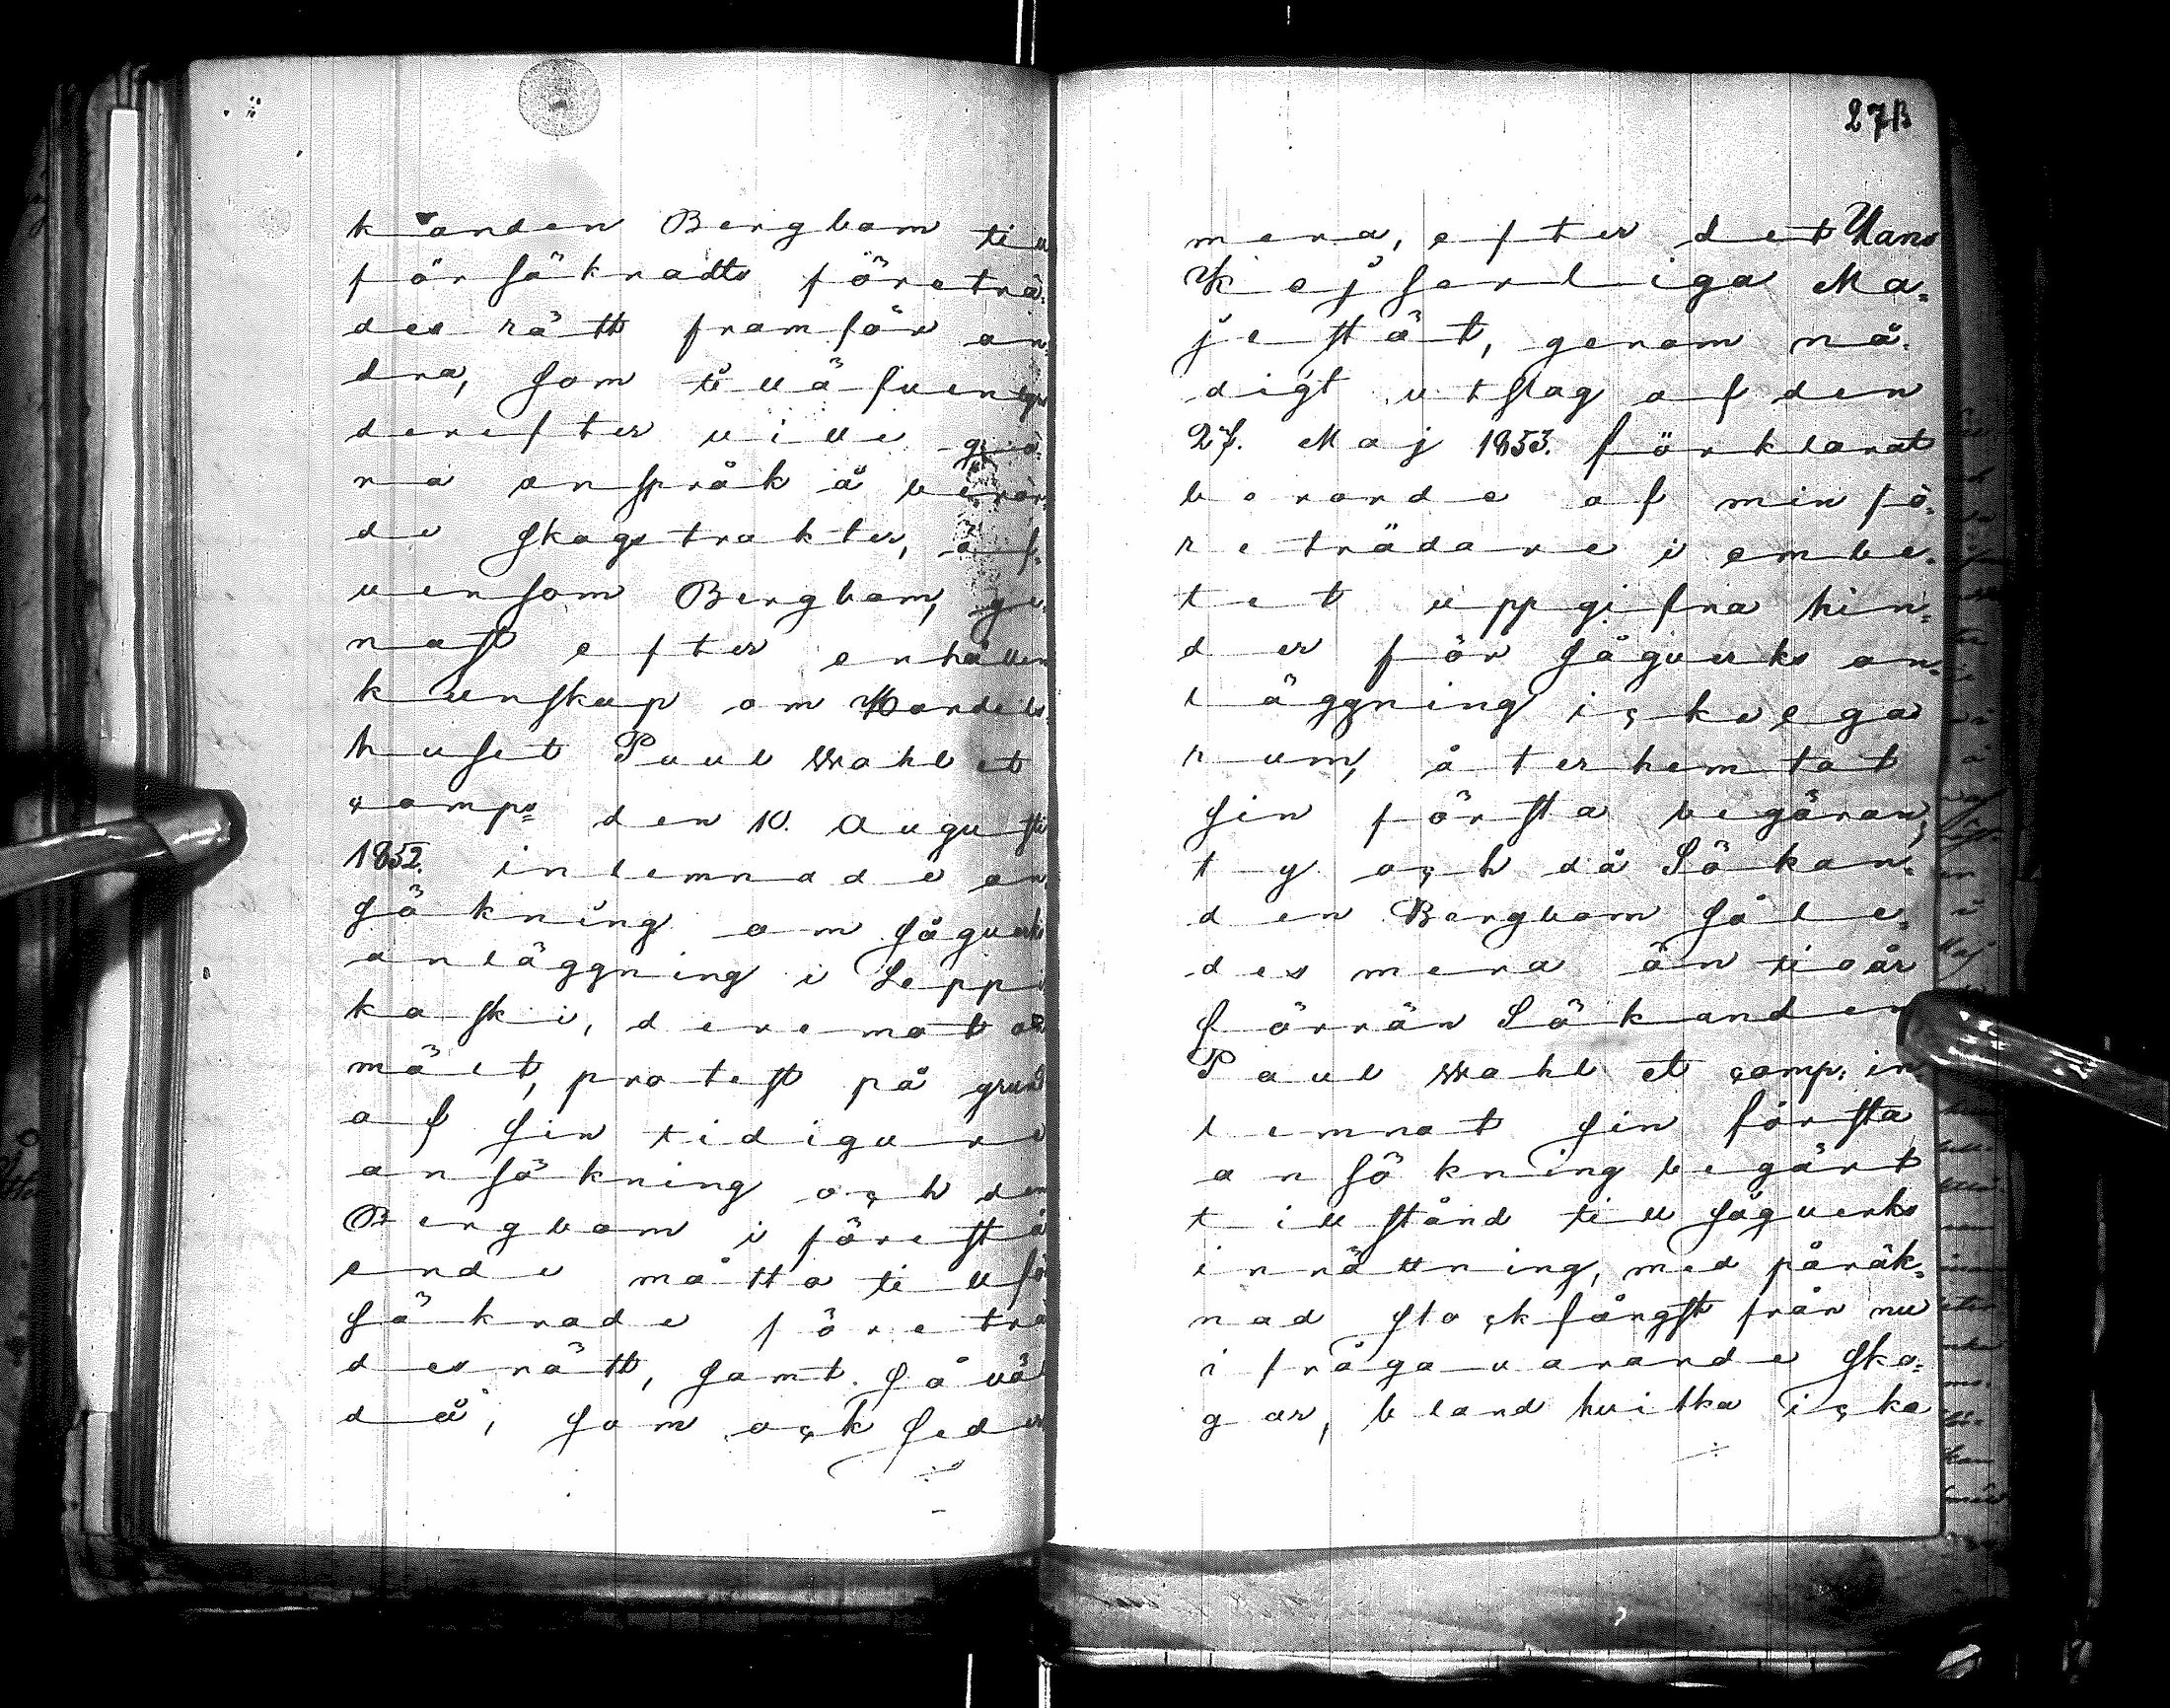 kanden Bergbom till
försäknadts företrä-
des rätt framför an-
dra, som till äfventyrs
derefter ville gjö-
ra anspråk å berör-
de skogstrakter, äf-
vensom Bergbom, ge-
nast efter erhållen
kunskap om Handels-
huset Paul Wahl et
comps den 10. Augusti
1852. inlemnade an-
sökning om sågverks
anläggning i Leppi
koski, deremot an
mält, protest på grund
af sin tidigare
ansökning och den
Bergbom i förestå
ende måtto tillför
säkrade företrä
desrätt, samt såväl
då, som ock seder
27B
mera, efter det Hans
Kejserliga Ma-
jestät, genom nå-
digt utslag af den
27. Maj 1853. förklarat
berorde af min fö-
reträdare i embe-
tet uppgifna hin-
der för sågverks an-
läggning icke ega
rum, återhemtat
sin första begäran,
ty och då Sökan-
den Bergbom såle-
des mera än tio år
förrän Sökanden
Paul Wahl et comp. in-
lemnat sin första
ansökning begärt
tillstånd till sågverks
inrättning, med påräk-
nad stockfångst från nu
ifrågavarande sko-
gar, bland hvilka icke